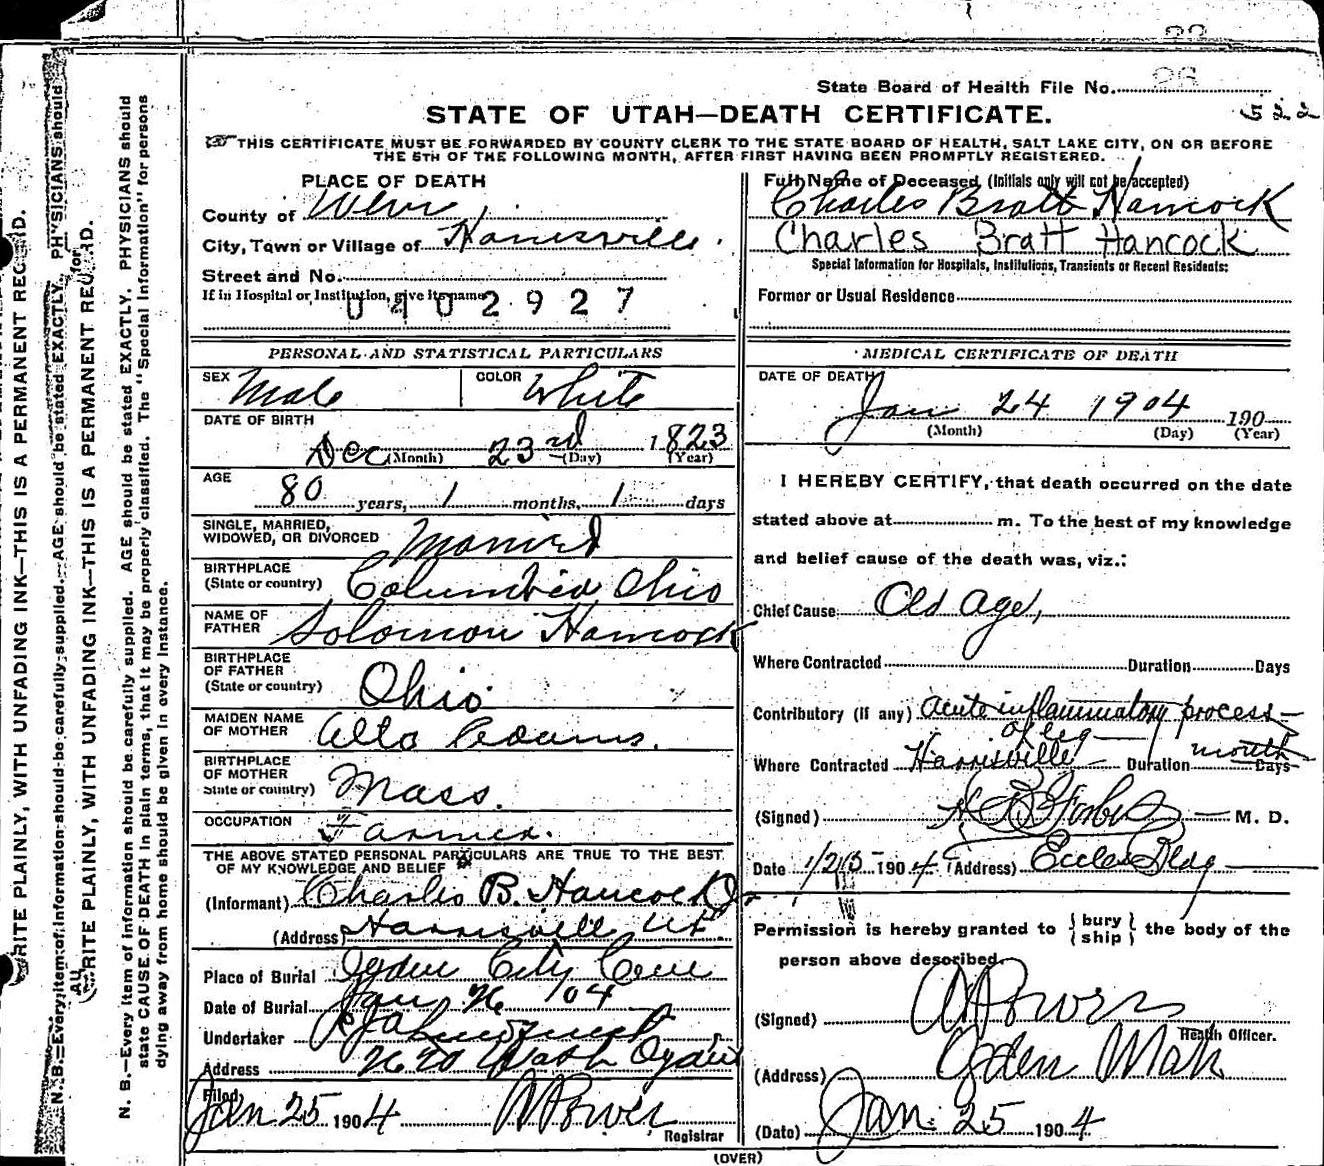 State Board of Health File No. 26
522
STATE OF UTAH—DEATH CERTIFICATE.
THIS CERTIFICATE MUST BE FORWARDED BY COUNTY CLERK TO THE STATE BOARD OF HEALTH, SALT LAKE CITY, ON OR BEFORE
THE 5TH OF THE FOLLOWING MONTH, AFTER FIRST HAVING BEEN PROMPTLY REGISTERED.
PLACE OF DEATH
County of Weber
City, Town or Village of Harrisville.
Street and No.
If in Hospital or Institution, give its name
0402927
PERSONAL AND STATISTICAL PARTICULARS
SEX Male COLOR White
DATE OF BIRTH
Dec 23rd 1823
(Month) (Day) (Year)
AGE
80 years, 1 months, 1 days
SINGLE, MARRIED,
WIDOWED, OR DIVORCED Married
BIRTHPLACE
(State or country) Columbia Ohio
NAME OF
FATHER Solomon Hancock
BIRTHPLACE
OF FATHER
(State or country) Ohio
MAIDEN NAME
OF MOTHER Alta Adams.
BIRTHPLACE
OF MOTHER
State or country) Mass.
OCCUPATION Farmer.
THE ABOVE STATED PERSONAL PARTICULARS ARE TRUE TO THE BEST
OF MY KNOWLEDGE AND BELIEF
(Informant) Charles B. Hancock Jr
(Address) Harrisville Ut.
Place of Burial Ogden City Cem
Date of Burial Jan 26 /04
Undertaker
Address Wash Ogden
Filed
Jan 25 1904
Registrar
Full Name of Deceased (Initials only will not be accepted)
Charles Bratt Hancock
Charles Bratt Hancock
Special Information for Hospitals, Institutions, Transients or Recent Residents:
Former or Usual Residence
MEDICAL CERTIFICATE OF DEATH
DATE OF DEATH
Jan 24 1904 190
(Month) (Day) (Year)
I HEREBY CERTIFY, that death occurred on the date
stated above at m. To the best of my knowledge
and belief cause of the death was, viz.:
Chief Cause Old age,
Where Contracted Duration Days
Contributory (if any) Acute inflammatory process
of leg
Where Contracted Harrisville Duration month Days
(Signed) Forbes M. D.
Date 1/25 1904 (Address) Eccles Bldg
Permission is hereby granted to { bury
ship } the body of the
person above described.
(Signed)
Health Officer.
(Address) Ogden Utah
(Date) Jan. 25 1904
(OVER)
N. B.—Every item of information should be carefully supplied. AGE should be stated EXACTLY. PHYSICIANS should
state CAUSE OF DEATH in plain terms, that it may be properly classified. The "Special Information" for persons
dying away from home should be given in every instance.
RITE PLAINLY, WITH UNFADING INK—THIS IS A PERMANENT RECORD.
N. B.—Every item of information should be carefully supplied. AGE should be stated EXACTLY. PHYSICIANS should
RITE PLAINLY, WITH UNFADING INK—THIS IS A PERMANENT RECORD.